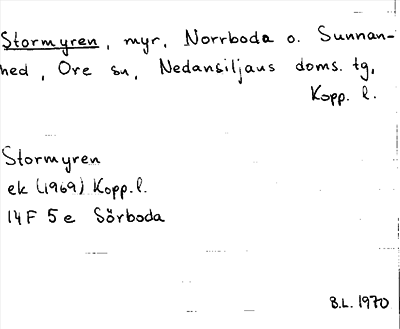 Stormyren, myr, Norrboda o. Sunnan-
hed, Ore sn, Nedansiljans doms. tg,
Kopp. l.
Stormyren
ek (1969) Kopp. l.
14F 5e Sörboda
B.L. 1970